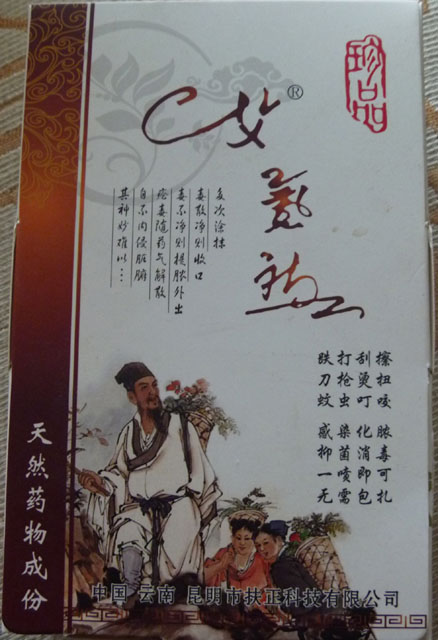 珍品
®
多次涂抹
毒散净则收口
毒不净则提脓外出
疮毒随药气解散
自不内侵脏腑
其神妙难以…
跌打刮擦
刀枪烫扭
蚊虫叮咬
感染化脓
抑菌消毒
一喷即可
无需包扎
天然药物成份
中国 云南 昆明市扶正科技有限公司